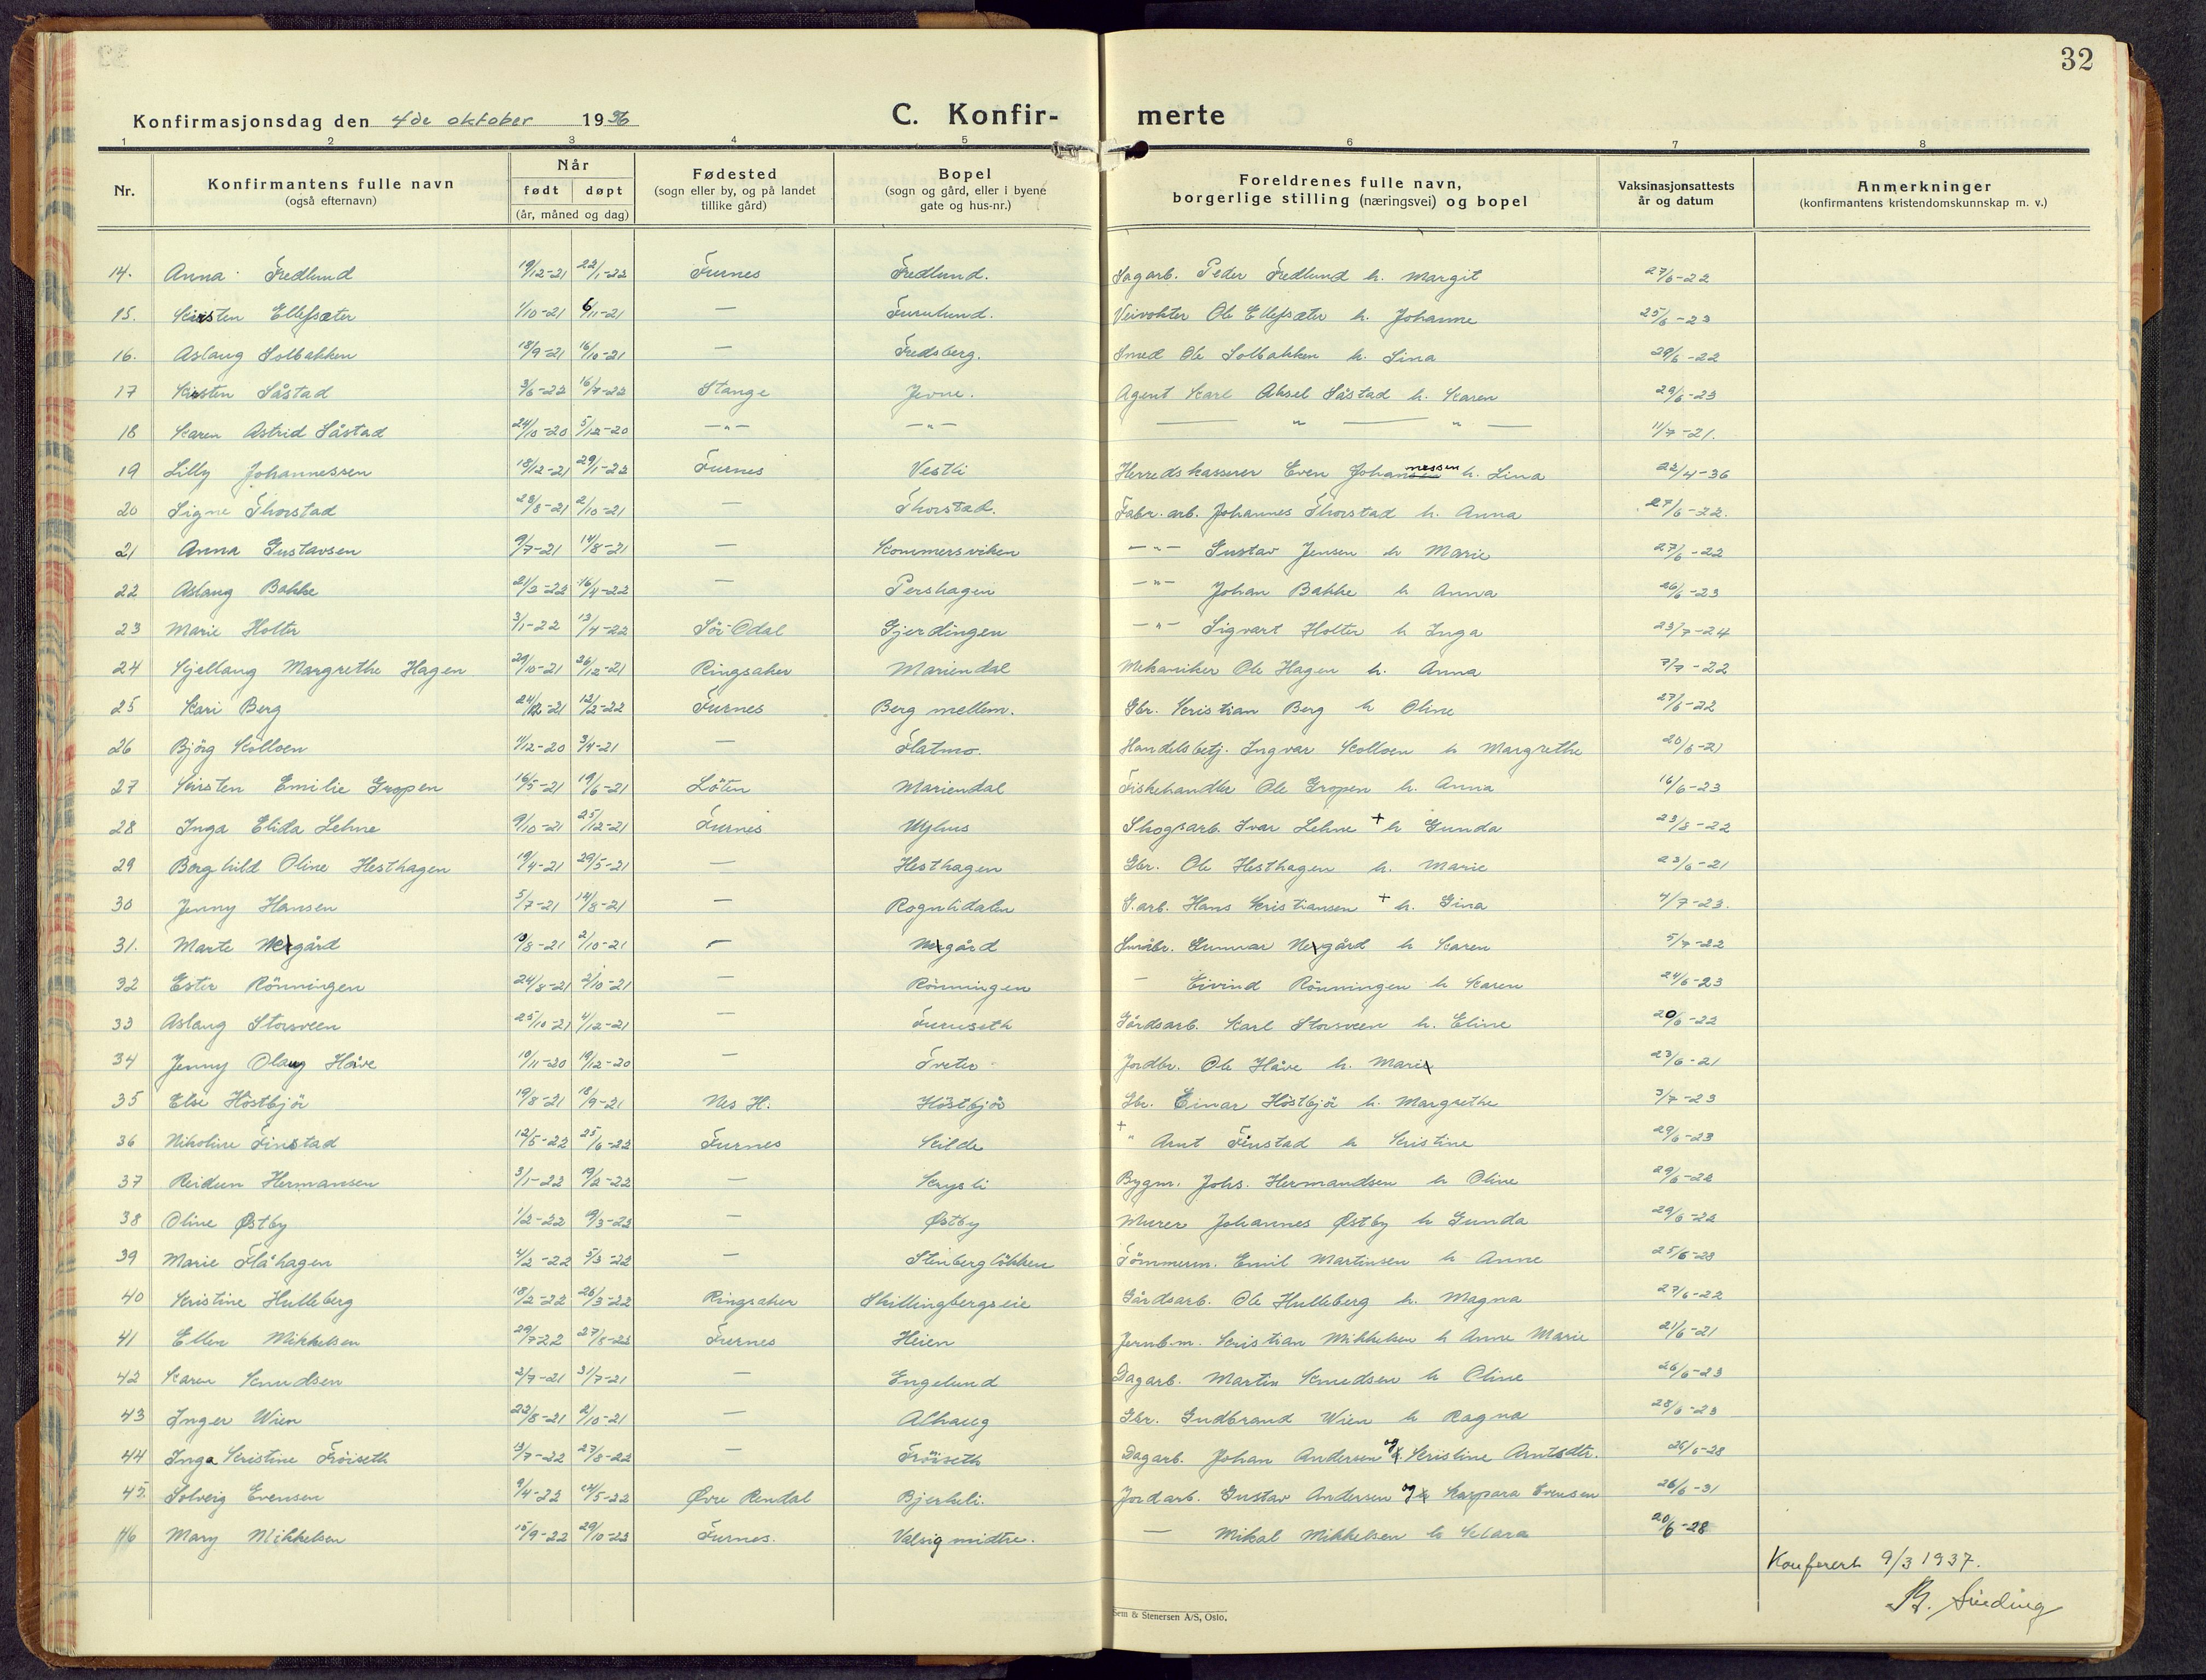 32
Konfirmasjonsdag den 4de oktober 1936 C. Konfir- merte
1 2 3 4 5 6 7 8
Nr. Konfirmantens fulle navn (også efternavn) Når født døpt (år, måned og dag) Fødested (sogn eller by, og på landet tillike gård) Bopel (sogn og gård, eller i byene gate og hus-nr.) Foreldrenes fulle navn, borgerlige stilling (næringsvei) og bopel Vaksinasjonsattests år og datum Anmerkninger (konfirmantens kristendomskunnskap m. v.)
14. Anna Fredlund 19/12-21 22/1-22 Furnes Fredlund. Sagarb. Peder Fredlund h. Margit 27/6-22
15. Kirsten Ellefsæter 1/10-21 6/11-21 — Furulund. Veivokter Ole Ellefsæter h. Johanne 25/6-23
16. Aslaug Solbakken 18/9-21 16/10-21 — Fredsberg. Smed Ole Solbakken h. Lina 29/6-22
17 Kirsten Såstad 3/6-22 16/7-22 Stange Jevne. Agent Karl Aksel Såstad h. Karen 29/6-23
18 Karen Astrid Såstad 24/10-20 5/12-20 —"— —"— — " — " — 11/7-21.
19 Lilly Johannessen 18/12-21 29/1-22 Furnes Vestli Herredskasserer Even Johannessen h. Lina 22/4-36
20 Signe Thorstad 23/8-21 2/10-21 — Thorstad. Fabr. arb. Johannes Thorstad h. Anna 27/6-22.
21 Anna Gustavsen 9/7-21 14/8-21 — Kommersviken —"— Gustav Jensen h Marie 27/6-22
22 Aslaug Bakke 21/2-22 16/4-22 — Pershagen —"— Johan Bakke h Anna 26/6-23
23 Marie Holter 3/1-22 13/4-22 Sör-Odal Gjerdingen —"— Sigvart Holter h Inga 23/7-24
24 Kjellaug Margrethe Hagen 29/10-21 26/12-21 Ringsaker Mariendal Mekaniker Ole Hagen h. Anna 7/7-22
25 Kari Berg 24/12-21 12/2-22 Furnes Berg mellem. Gbr. Kristian Berg h Oline 27/6-22
26 Björg Kolloen 11/12-20 3/4-21 — Flatmo. Handelsbetj. Ingvar Kolloen h Margrethe 20/6-21
27 Kirsten Emilie Gropen 16/5-21 19/6-21 Löten Mariendal Fiskehandler Ole Gropen h. Anna 16/6-23
28 Inga Elida Lehne 9/10-21 25/12-21 Furnes Myhus Skogsarb. Ivar Lehne + h Gunda 23/8-22
29 Borghild Oline Hesthagen 19/4-21 29/5-21 — Hesthagen Gbr. Ole Hesthagen h. Marie 23/6-21
30 Jenny Hansen 5/7-21 14/8-21 — Rognlidalen G.arb. Hans Kristiansen + h. Gina 4/7-23.
31. Marte Nergård 13/8-21 2/10-21 — Nergård Småbr. Gunnar Nergård h Karen 5/7-22
32 Ester Rönningen 24/8-21 2/10-21 — Rönningen — Eivind Rönningen h Karen 24/6-23
33 Aslaug Storsveen 25/10-21 4/12-21 — Furuseth Gårdsarb. Karl Storsveen h. Eline 20/6-22
34 Jenny Olaug Håve 10/11-20 19/12-20 — Treter Jordbr. Ole Håve h. Mari 23/6-21
35 Else Höstbjör 19/8-21 18/9-21 Nes H. Höstbjör Gbr. Einar Höstbjör h. Margrethe 3/7-23
36 Nikoline Finstad 12/5-22 25/6-22 Furnes Kilde + " Arnt Finstad h Kristine 29/6-23
37 Reidun Hermansen 3/1-22 19/2-22 — Krysli Bygm. Johs. Hermandsen h Oline 29/6-22
38 Oline Østby 1/2-22 19/3-22 — Østby Murer Johannes Østby h Gunda 29/6-22
39 Marie Flåhagen 4/2-22 5/3-22 — Stenberglökken Tömmerm. Emil Martinsen h Anne 25/6-23
40 Kristine Hulleberg 18/2-22 26/3-22 Ringsaker Skillingbergseie Gårdsarb. Ole Hulleberg h. Magna 27/6-22
41 Ellen Mikkelsen 29/7-22 27/8-22 Furnes Heien Jernb.m. Kristian Mikkelsen h Anne Marie 21/6-21
42 Karen Knudsen 2/7-21 31/7-21 — Engelund Dagarb. Martin Knudsen h Oline 26/6-23
43 Inger Wien 22/8-21 2/10-21 — Alhaug Gbr. Gudbrand Wien h Ragna 28/6-23
44 Inga Kristine Fröiseth 13/7-22 27/8-22 — Fröiseth Dagarb. Johan Andersen og Kristine Arntsdtr. 25/6-28
45. Solveig Evensen 9/4-22 14/5-22 Øvre Rendal Bjerkeli. Jordarb. Gustav Andersen og Kaspara Evensen 26/6-31
46 Mary Mikkelsen 15/9-22 29/10-22 Furnes. Valsig midtre. — Mikal Mikkelsen h Klara 20/6-28
Konferert 9/3 1937.
Sinding
Sem & Stenersen A/S, Oslo.